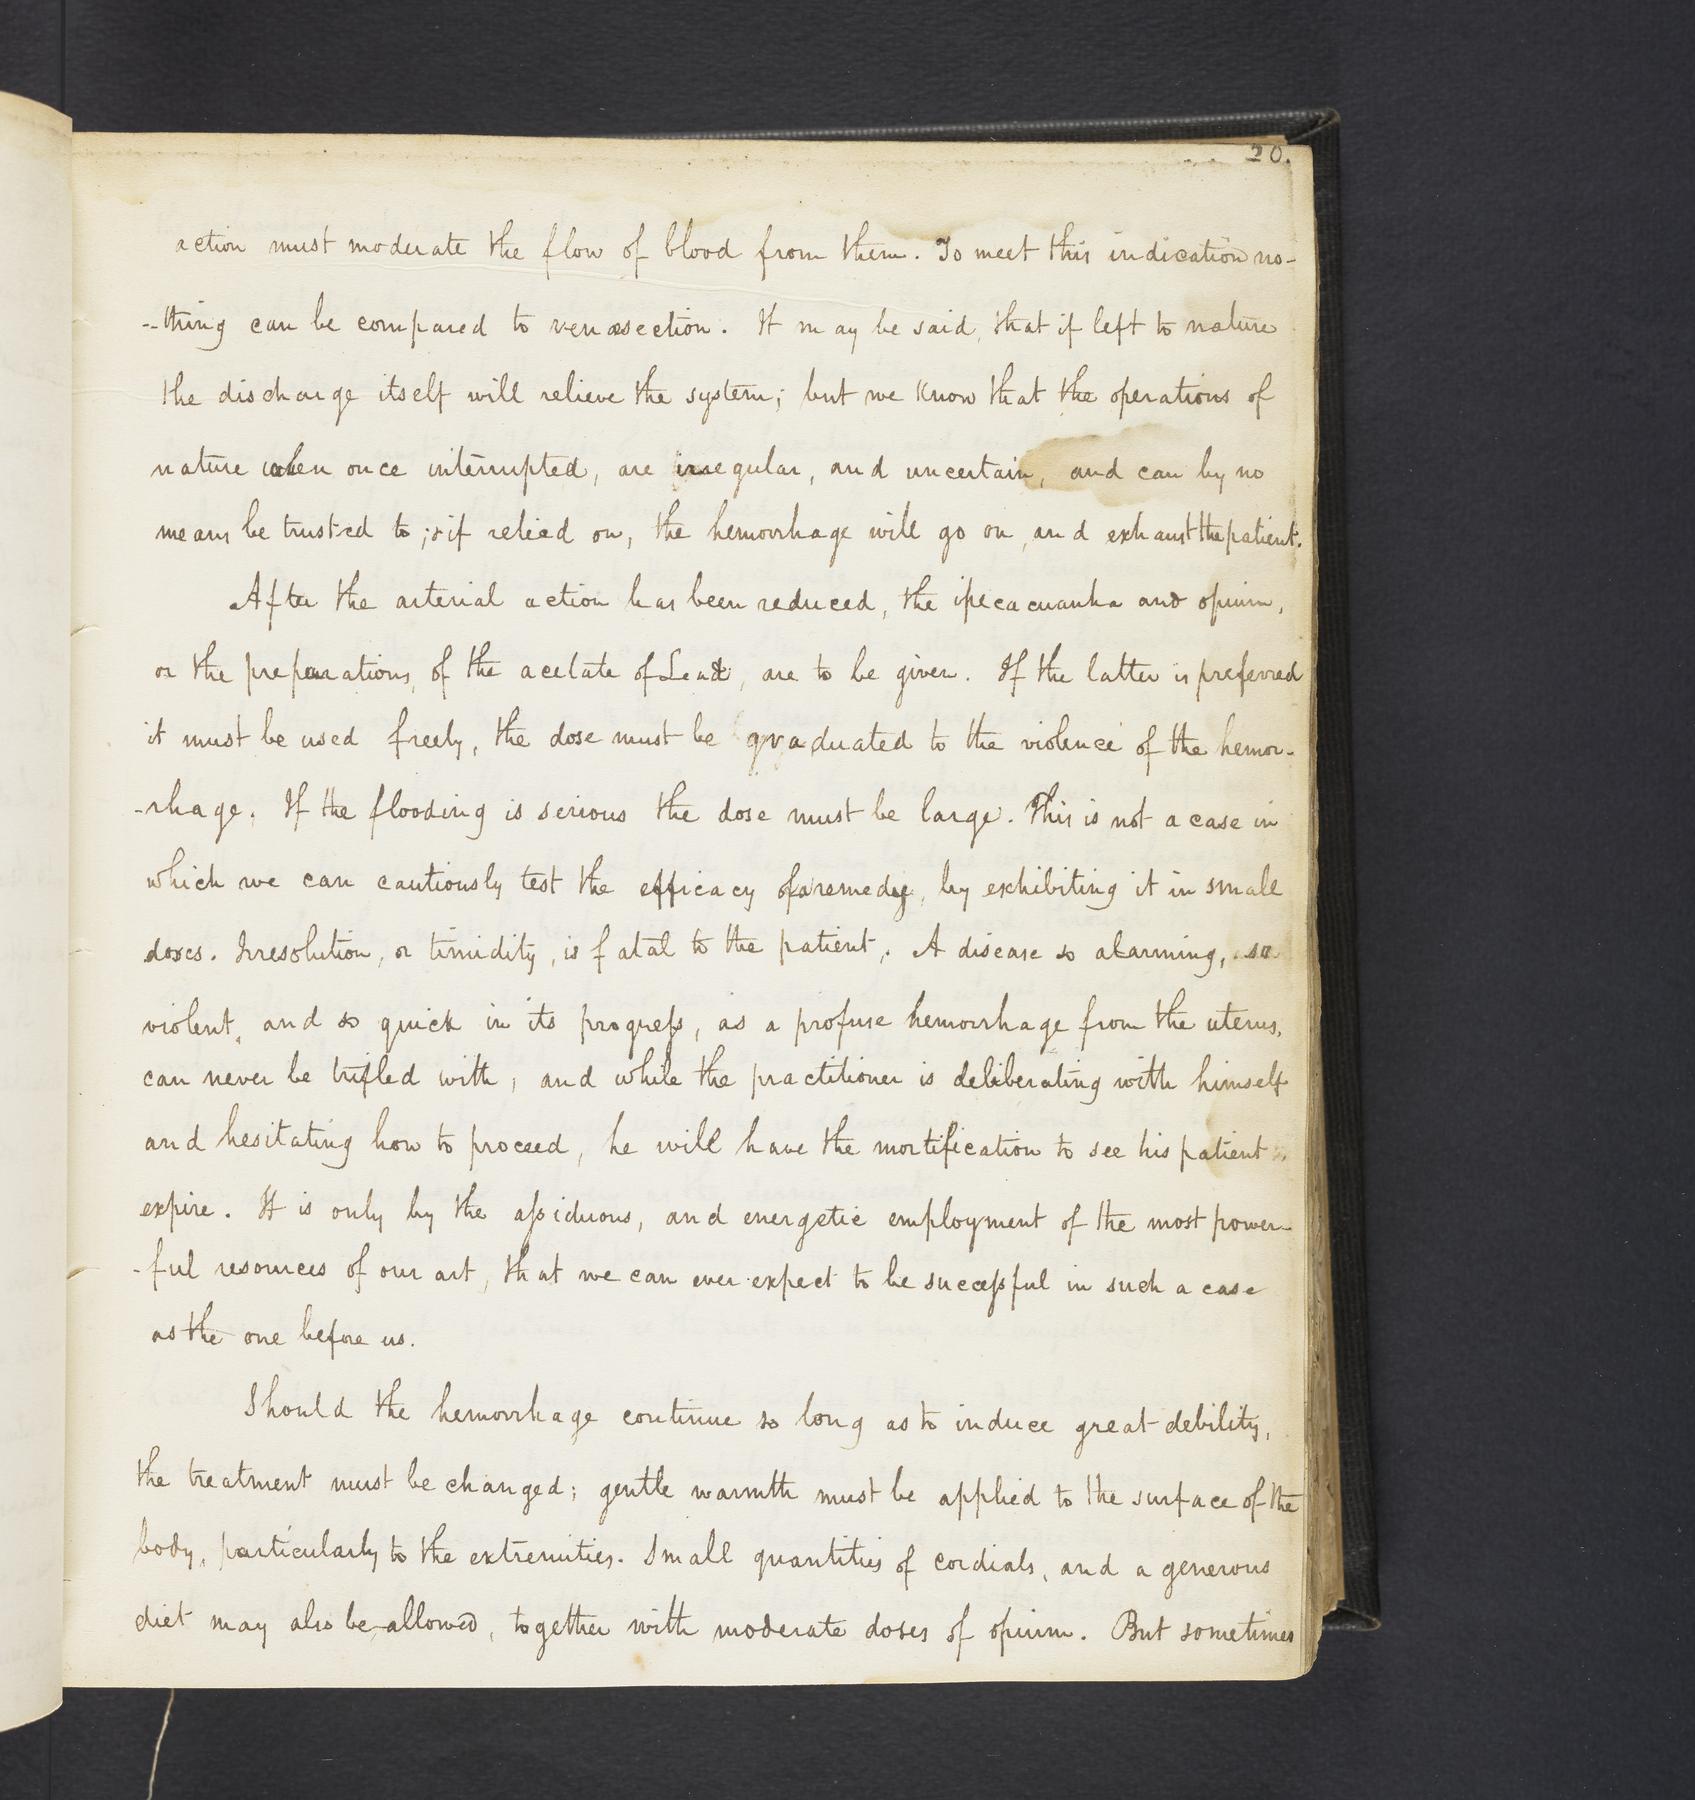 20.
action must moderate the flow of blood from them. To meet this indication no-
-thing can be compared to venæsection. It may be said, that if left to nature
the discharge itself will relieve the system; but we know that the operations of
nature when once interrupted, are irregular, and uncertain, and can by no
means be trusted to; & if relied on, the hemorrhage will go on, and exhaust the patient.
After the arterial action has been reduced, the ipecacuanha and opium,
or the preparations, of the acetate of Lead, are to be given. If the latter is preferred
it must be used freely, the dose must be graduated to the violence of the hemor-
-rhage. If the flooding is serious the dose must be large. This is not a case in
which we can cautiously test the efficacy of a remedy, by exhibiting it in small
doses. Irresolution, or timidity, is fatal to the patient. A disease so alarming, so
violent, and so quick in its progress, as a profuse hemorrhage from the uterus,
can never be trifled with, and while the practitioner is deliberating with himself
and hesitating how to proceed, he will have the mortification to see his patient
expire. It is only by the assiduous, and energetic employment of the most power-
-ful resources of our art, that we can ever expect to be successful in such a case
as the one before us.
Should the hemorrhage continue so long as to induce great debility,
the treatment must be changed; gentle warmth must be applied to the surface of the
body, particularly to the extremities. Small quantities of cordials, and a generous
diet may also be allowed, together with moderate doses of opium. But sometimes